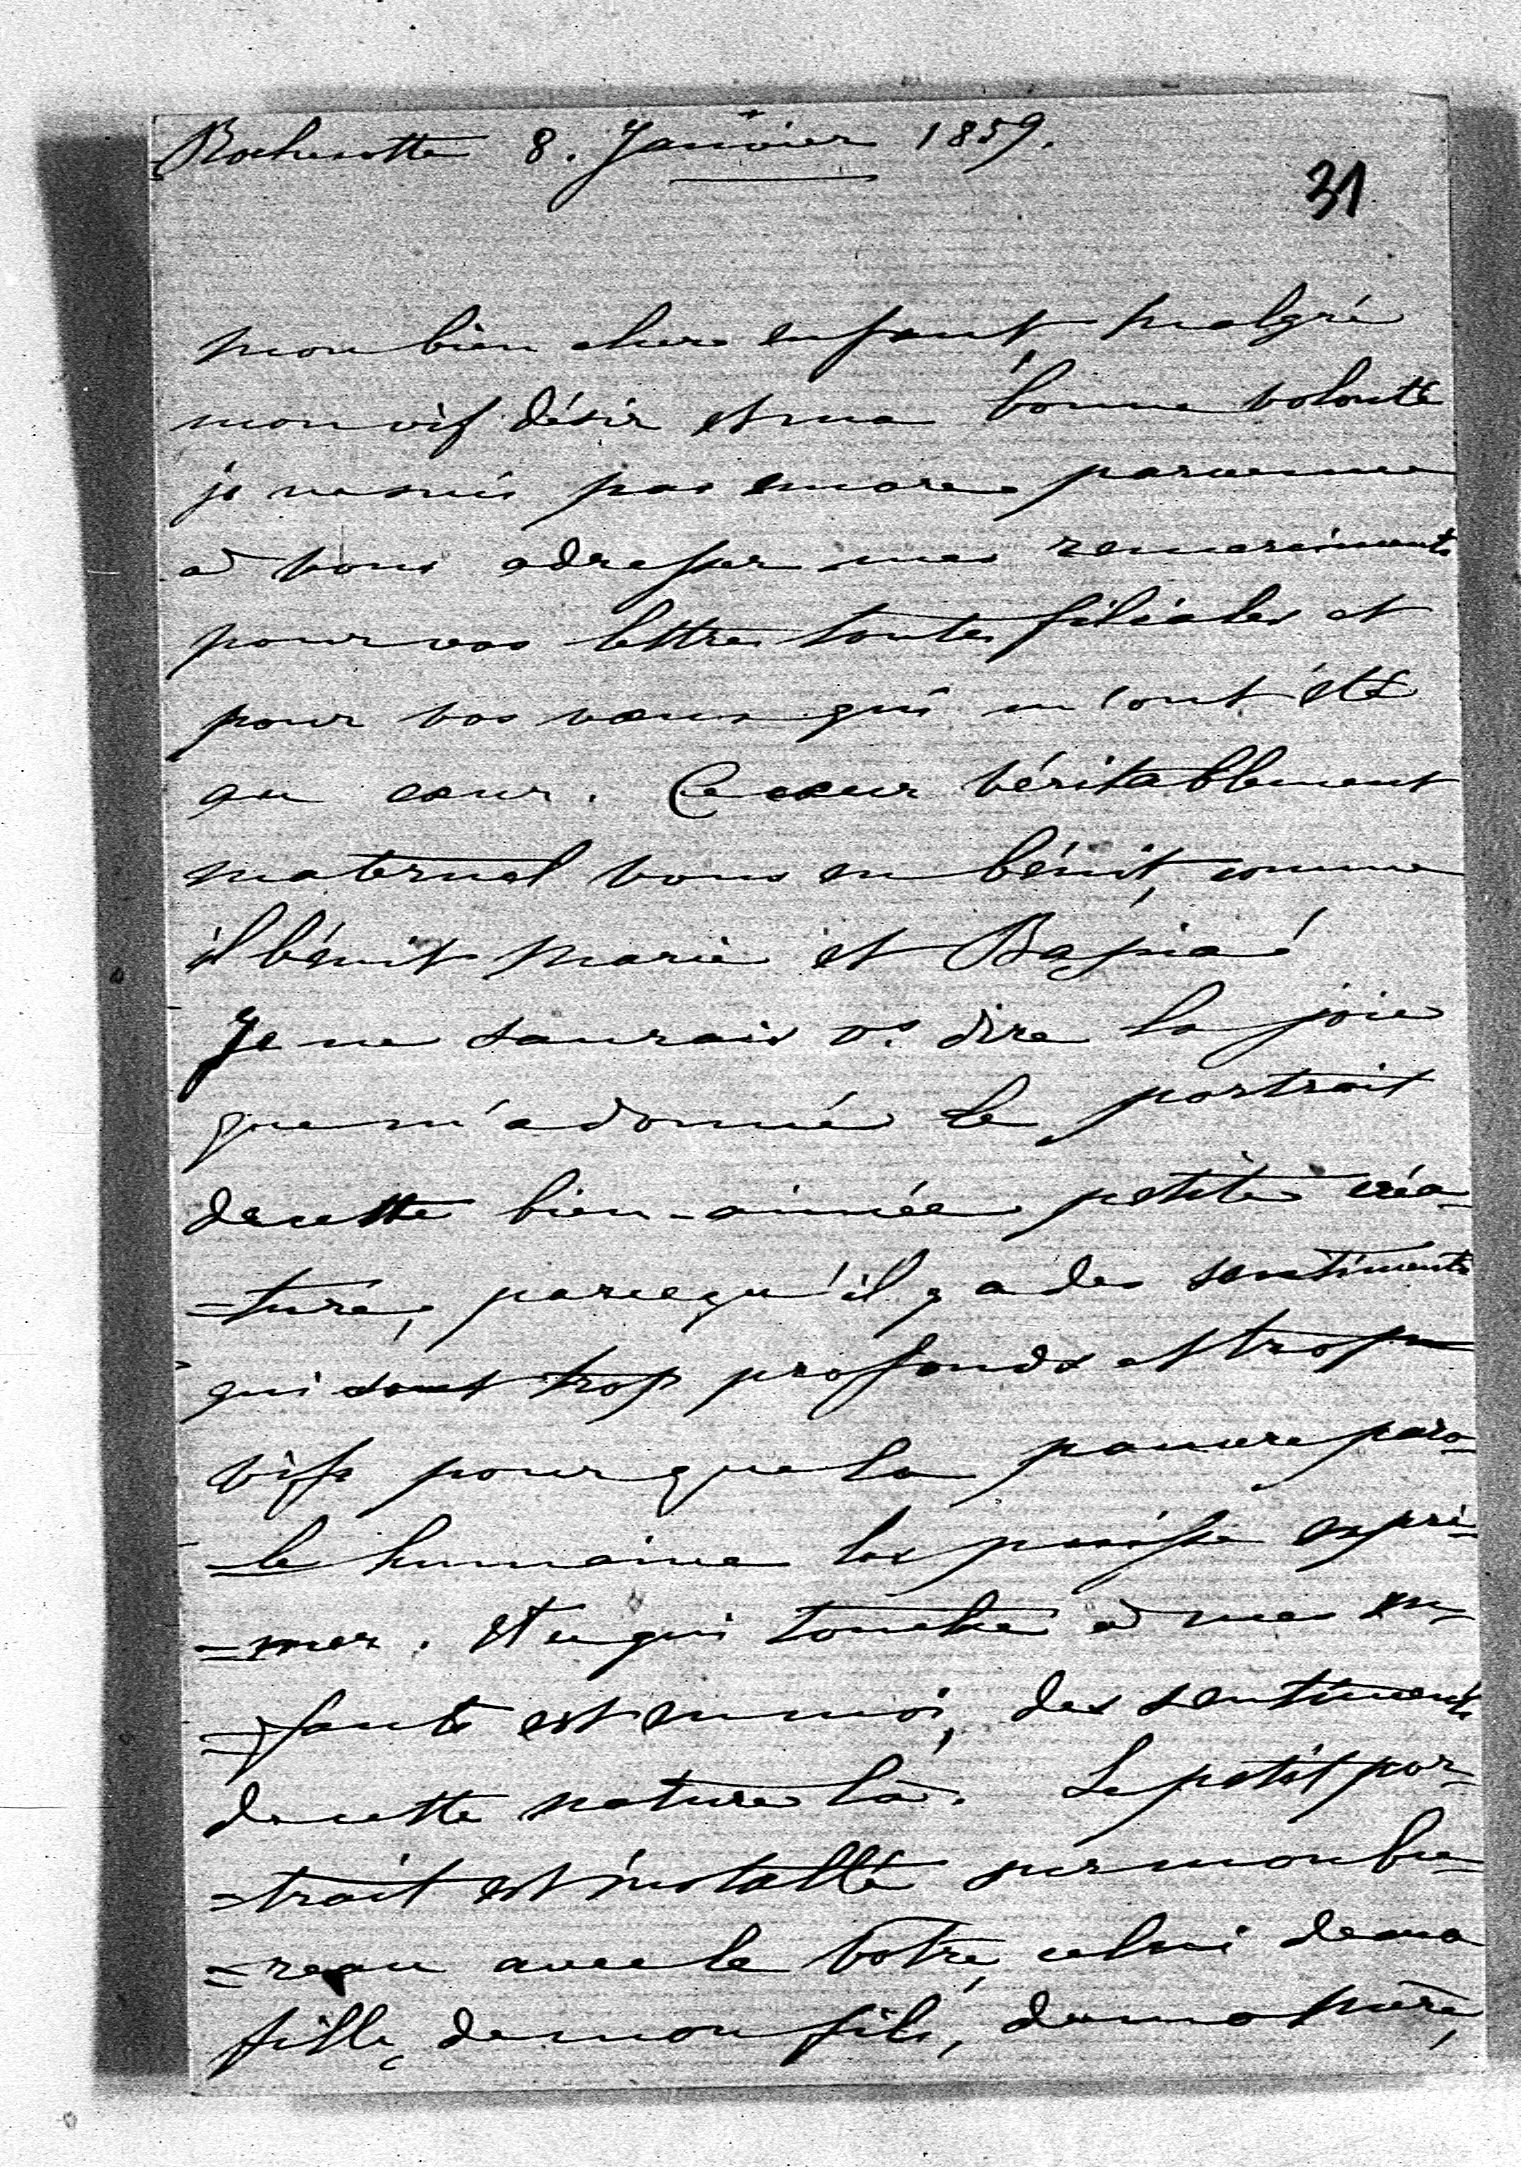 Rochecotte 8. Janvier 1859.
31
Mon bien cher enfant, malgré
mon vif désir et ma bonne volonté
je ne suis pas encore parvenue
à vous adresser mes remerciments
pour vos lettres toutes filiales et
pour vos vœux qui m'ont été
au cœur. Ce cœur véritablement
maternel vous en bénit, comme
il bénit Marie et
Je ne saurais vs. dire la joie
que m'a donnée le portrait
de cette bien-aimée petite créa-
-ture, parcequ'il y a des sentiments
qui sont trop profonds et trop
vifs pour que la pauvre paro-
-le humaine les puisse expri-
-mer. Et ce qui touche à mes en-
-fants est en moi, des sentiments
de cette nature là. Le petit por-
-trait est installé sur mon bu-
-reau avec le votre, celui de ma
fille, de mon fils, de ma mère,